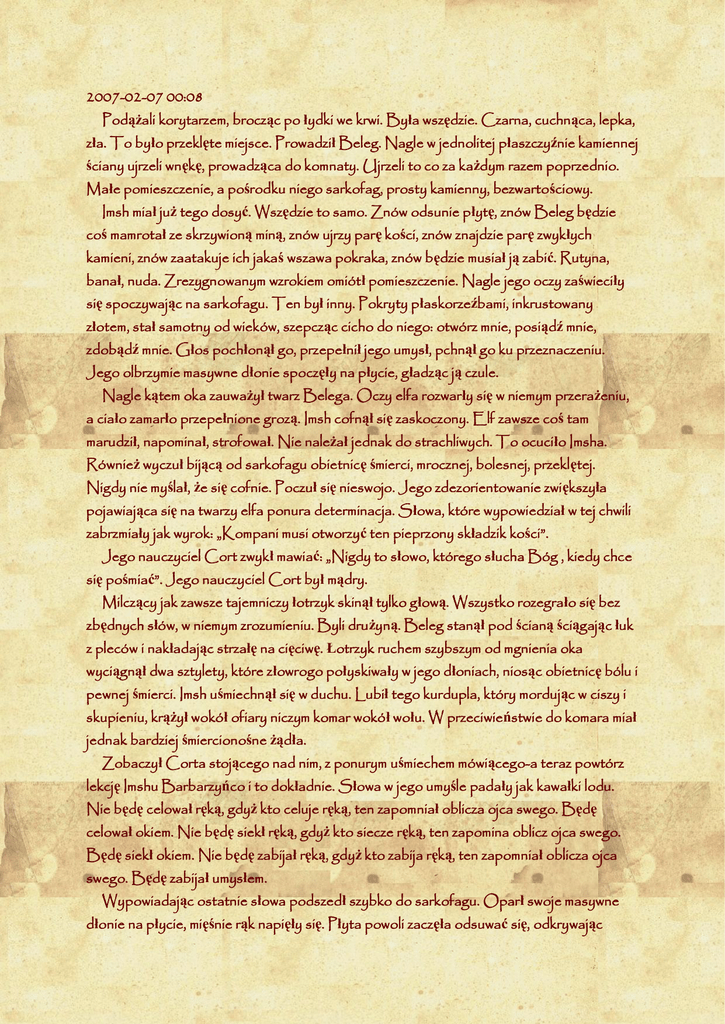 2007-02-07 00:08
Podążali korytarzem, brocząc po łydki we krwi. Była wszędzie. Czarna, cuchnąca, lepka,
zła. To było przeklęte miejsce. Prowadził Beleg. Nagle w jednolitej płaszczyźnie kamiennej
ściany ujrzeli wnękę, prowadząca do komnaty. Ujrzeli to co za każdym razem poprzednio.
Małe pomieszczenie, a pośrodku niego sarkofag, prosty kamienny, bezwartościowy.
Imsh miał już tego dosyć. Wszędzie to samo. Znów odsunie płytę, znów Beleg będzie
coś mamrotał ze skrzywioną miną, znów ujrzy parę kości, znów znajdzie parę zwykłych
kamieni, znów zaatakuje ich jakaś wszawa pokraka, znów będzie musiał ją zabić. Rutyna,
banał, nuda. Zrezygnowanym wzrokiem omiótł pomieszczenie. Nagle jego oczy zaświeciły
się spoczywając na sarkofagu. Ten był inny. Pokryty płaskorzeźbami, inkrustowany
złotem, stał samotny od wieków, szepcząc cicho do niego: otwórz mnie, posiądź mnie,
zdobądź mnie. Głos pochłonął go, przepełnił jego umysł, pchnął go ku przeznaczeniu.
Jego olbrzymie masywne dłonie spoczęły na płycie, gładząc ją czule.
Nagle kątem oka zauważył twarz Belega. Oczy elfa rozwarły się w niemym przerażeniu,
a ciało zamarło przepełnione grozą. Imsh cofnął się zaskoczony. Elf zawsze coś tam
marudził, napominał, strofował. Nie należał jednak do strachliwych. To ocuciło Imsha.
Również wyczuł bijącą od sarkofagu obietnicę śmierci, mrocznej, bolesnej, przeklętej.
Nigdy nie myślał, że się cofnie. Poczuł się nieswojo. Jego zdezorientowanie zwiększyła
pojawiająca się na twarzy elfa ponura determinacja. Słowa, które wypowiedział w tej chwili
zabrzmiały jak wyrok: „Kompani musi otworzyć ten pieprzony składzik kości”.
Jego nauczyciel Cort zwykł mawiać: „Nigdy to słowo, którego słucha Bóg , kiedy chce
się pośmiać”. Jego nauczyciel Cort był mądry.
Milczący jak zawsze tajemniczy łotrzyk skinął tylko głową. Wszystko rozegrało się bez
zbędnych słów, w niemym zrozumieniu. Byli drużyną. Beleg stanął pod ścianą ściągając łuk
z pleców i nakładając strzałę na cięciwę. Łotrzyk ruchem szybszym od mgnienia oka
wyciągnął dwa sztylety, które złowrogo połyskiwały w jego dłoniach, niosąc obietnicę bólu i
pewnej śmierci. Imsh uśmiechnął się w duchu. Lubił tego kurdupla, który mordując w ciszy i
skupieniu, krążył wokół ofiary niczym komar wokół wołu. W przeciwieństwie do komara miał
jednak bardziej śmiercionośne żądła.
Zobaczył Corta stojącego nad nim, z ponurym uśmiechem mówiącego-a teraz powtórz
lekcję Imshu Barbarzyńco i to dokładnie. Słowa w jego umyśle padały jak kawałki lodu.
Nie będę celował ręką, gdyż kto celuje ręką, ten zapomniał oblicza ojca swego. Będę
celował okiem. Nie będę siekł ręką, gdyż kto siecze ręką, ten zapomina oblicz ojca swego.
Będę siekł okiem. Nie będę zabijał ręką, gdyż kto zabija ręką, ten zapomniał oblicza ojca
swego. Będę zabijał umysłem.
Wypowiadając ostatnie słowa podszedł szybko do sarkofagu. Oparł swoje masywne
dłonie na płycie, mięśnie rąk napięły się. Płyta powoli zaczęła odsuwać się, odkrywając